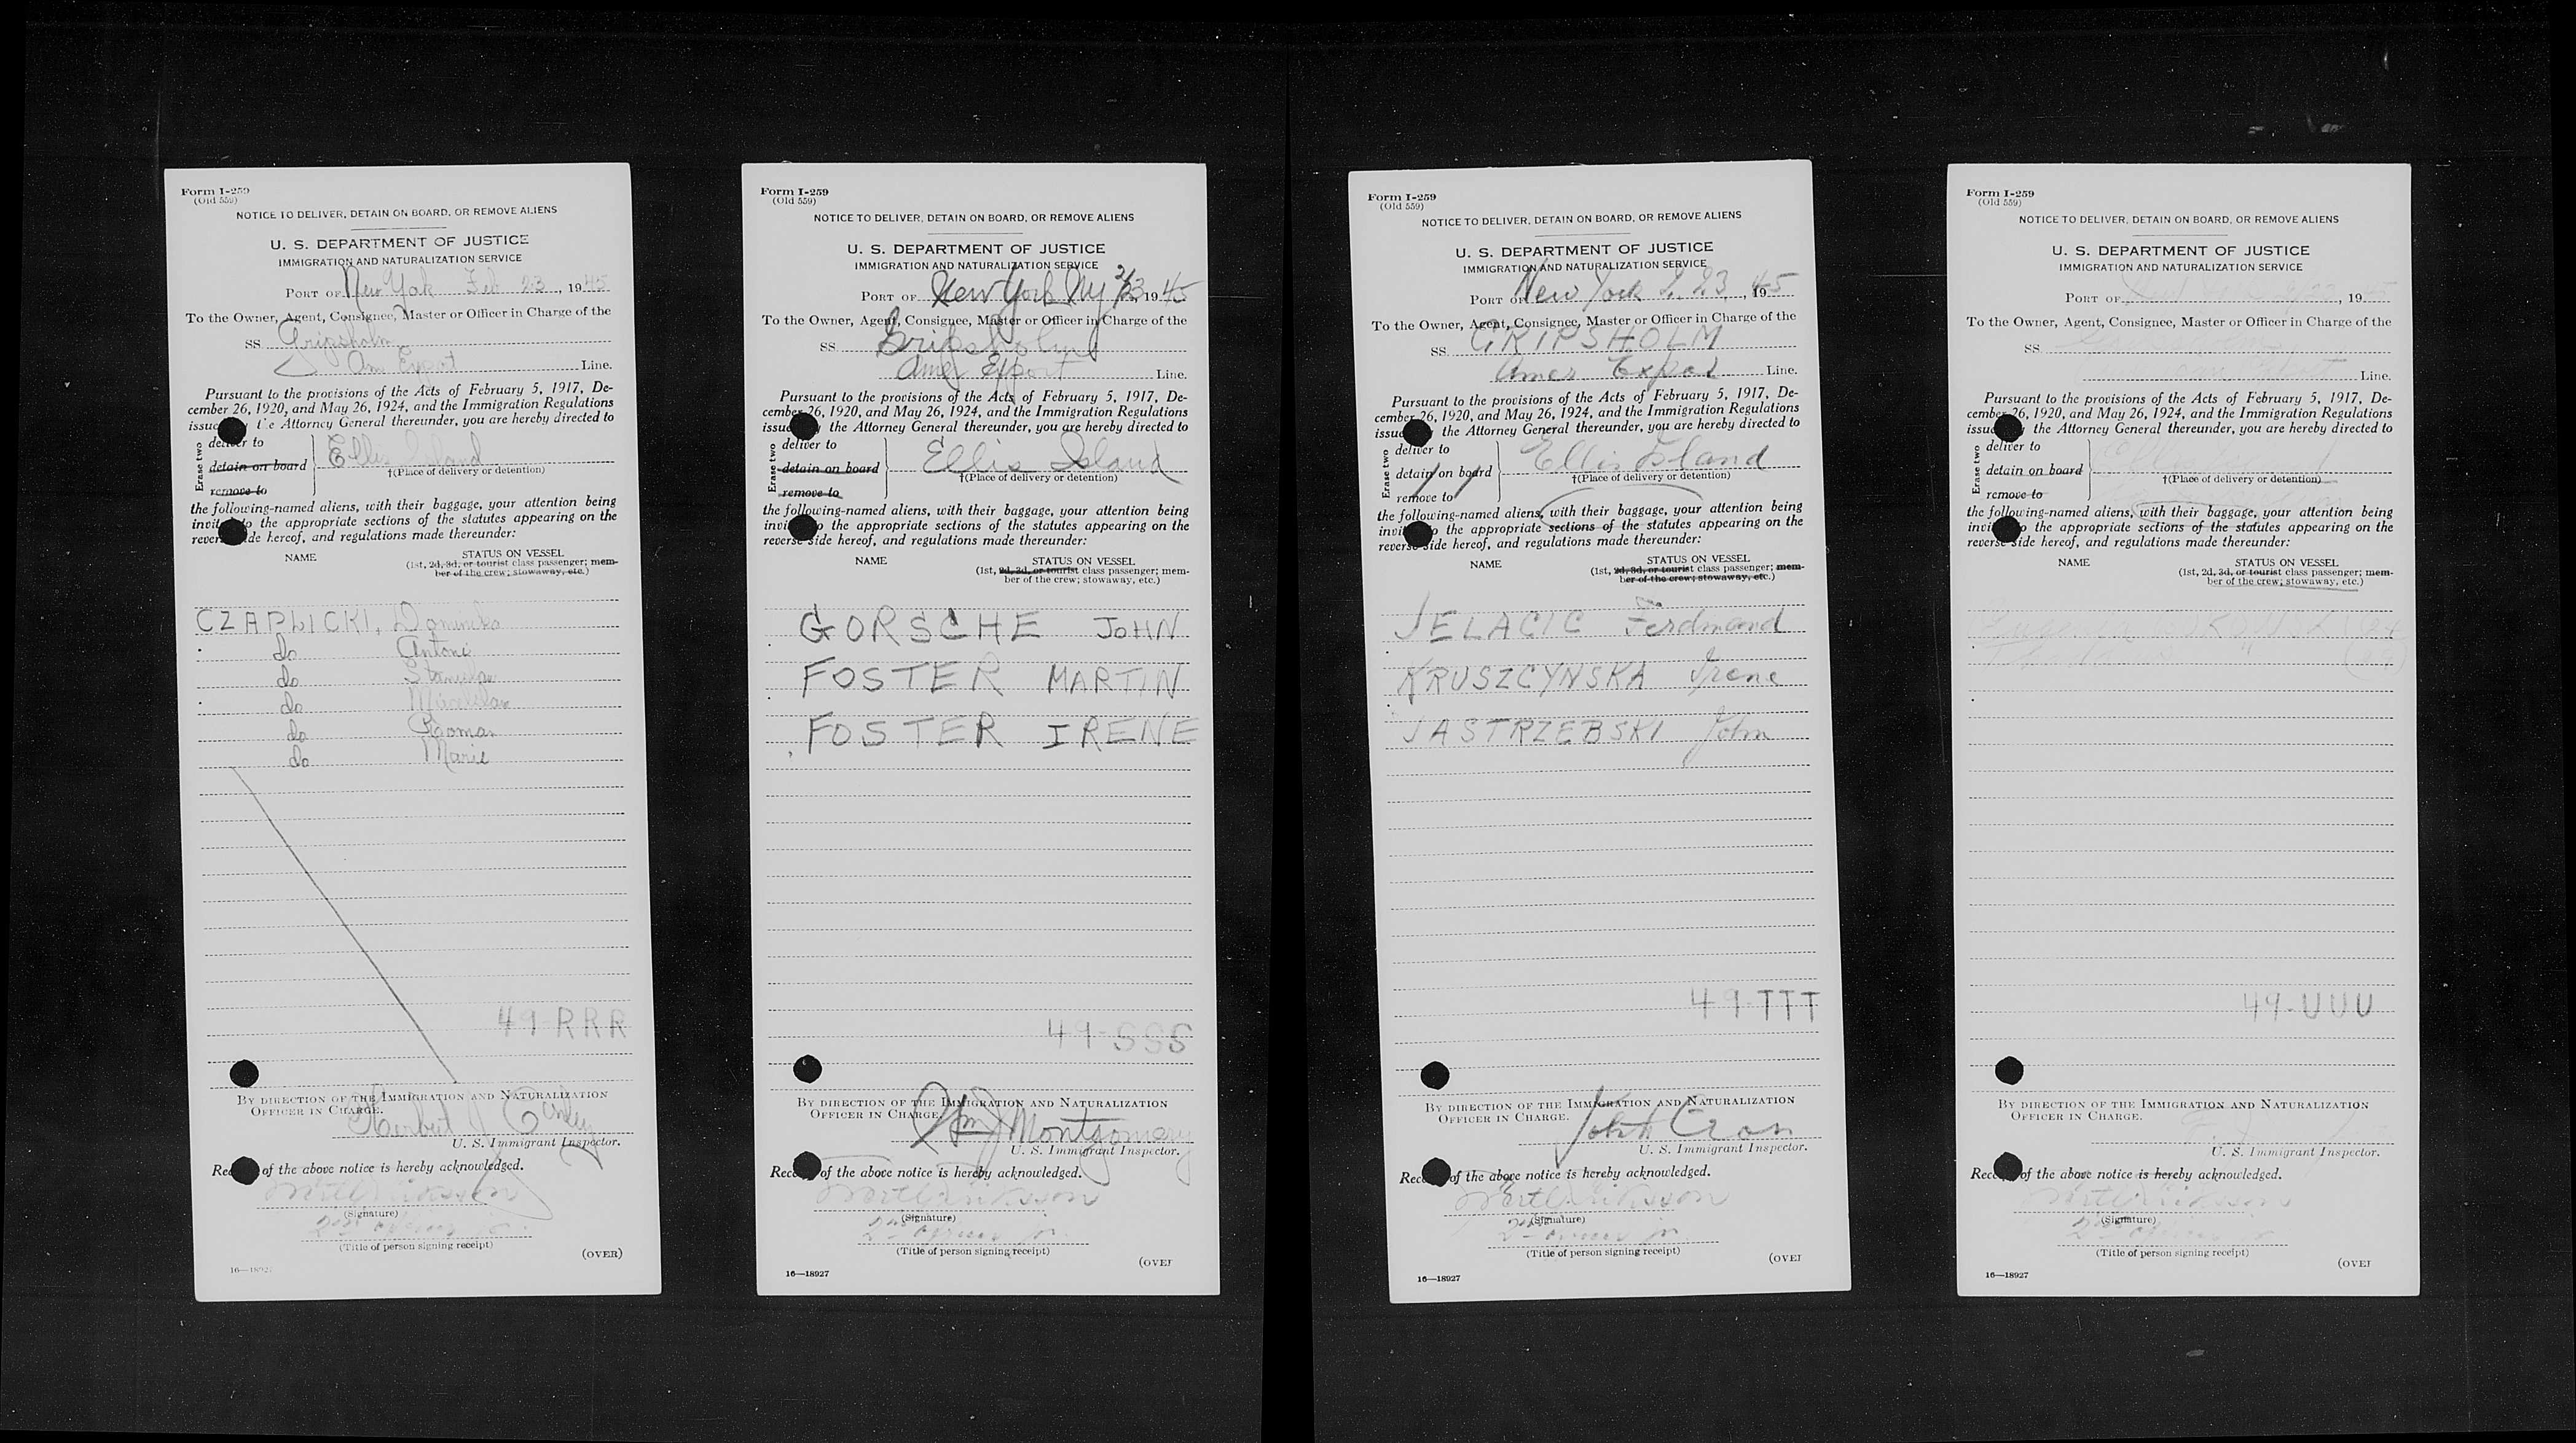 Form I-259
(Old 559)
NOTICE TO DELIVER, DETAIN ON BOARD, OR REMOVE ALIENS
U. S. DEPARTMENT OF JUSTICE
IMMIGRATION AND NATURALIZATION SERVICE
PORT OF New York Feb 23, 1945
To the Owner, Agent, Consignee, Master or Officer in Charge of the
SS Gripsholm
Am Export Line.
Pursuant to the provisions of the Acts of February 5, 1917, De-
cember 26, 1920, and May 26, 1924, and the Immigration Regulations
issued the Attorney General thereunder, you are hereby directed to
Erase two
deliver to
detain on board
remove to
Ellis Island
†(Place of delivery or detention)
the following-named aliens, with their baggage, your attention being
invit to the appropriate sections of the statutes appearing on the
revers ide hereof, and regulations made thereunder:
NAME
STATUS ON VESSEL
(1st, 2d, 3d, or tourist class passenger; mem-
ber of the crew; stowaway, etc.)
CZAPLICKI, Dominika
do Antoni
do
do
do Roman
do Marie
49 RRR
BY DIRECTION OF THE IMMIGRATION AND NATURALIZATION
OFFICER IN CHARGE.
Herbert J
U. S. Immigrant Inspector.
Rec of the above notice is hereby acknowledged.
(Signature)
(Title of person signing receipt)
(OVER)
Form I-259
(Old 559)
NOTICE TO DELIVER, DETAIN ON BOARD, OR REMOVE ALIENS
U. S. DEPARTMENT OF JUSTICE
IMMIGRATION AND NATURALIZATION SERVICE
PORT OF New York Ny 2/23, 1945
To the Owner, Agent, Consignee, Master or Officer in Charge of the
SS Gripsholm
Amer Export Line.
Pursuant to the provisions of the Acts of February 5, 1917, De-
cember 26, 1920, and May 26, 1924, and the Immigration Regulations
issue the Attorney General thereunder, you are hereby directed to
Erase two
deliver to
detain on board
remove to
Ellis Island
†(Place of delivery or detention)
the following-named aliens, with their baggage, your attention being
invi o the appropriate sections of the statutes appearing on the
reverse side hereof, and regulations made thereunder:
NAME
STATUS ON VESSEL
(1st, 2d, 3d, or tourist class passenger; mem-
ber of the crew; stowaway, etc.)
GORSCHE JOHN
FOSTER MARTIN
FOSTER IRENE
49-SSS
BY DIRECTION OF THE IMMIGRATION AND NATURALIZATION
OFFICER IN CHARGE.
Wm J Montgomery
U. S. Immigrant Inspector.
Rece of the above notice is hereby acknowledged.
(Signature)
2nd Officer jr.
(Title of person signing receipt)
(OVER
16—18927
Form I-259
(Old 559)
NOTICE TO DELIVER, DETAIN ON BOARD, OR REMOVE ALIENS
U. S. DEPARTMENT OF JUSTICE
IMMIGRATION AND NATURALIZATION SERVICE
PORT OF New York 2. 23, 1945
To the Owner, Agent, Consignee, Master or Officer in Charge of the
SS GRIPSHOLM
Amer Export Line.
Pursuant to the provisions of the Acts of February 5, 1917, De-
cember 26, 1920, and May 26, 1924, and the Immigration Regulations
issue the Attorney General thereunder, you are hereby directed to
Erase two
deliver to
detain on board
remove to
Ellis Island
†(Place of delivery or detention)
the following-named aliens, with their baggage, your attention being
invi o the appropriate sections of the statutes appearing on the
reverse side hereof, and regulations made thereunder:
NAME
STATUS ON VESSEL
(1st, 2d, 3d, or tourist class passenger; mem-
ber of the crew; stowaway, etc.)
JELACIC Ferdinand
KRUSZCYNSKA Irene
JASTRZEBSKI John
49-TTT
BY DIRECTION OF THE IMMIGRATION AND NATURALIZATION
OFFICER IN CHARGE.
U. S. Immigrant Inspector.
Rece of the above notice is hereby acknowledged.
(Signature)
2nd Officer jr
(Title of person signing receipt)
(OVER
16—18927
Form I-259
(Old 559)
NOTICE TO DELIVER, DETAIN ON BOARD, OR REMOVE ALIENS
U. S. DEPARTMENT OF JUSTICE
IMMIGRATION AND NATURALIZATION SERVICE
PORT OF , 19
To the Owner, Agent, Consignee, Master or Officer in Charge of the
SS
Line.
Pursuant to the provisions of the Acts of February 5, 1917, De-
cember 26, 1920, and May 26, 1924, and the Immigration Regulations
issue the Attorney General thereunder, you are hereby directed to
Erase two
deliver to
detain on board
remove to
†(Place of delivery or detention)
the following-named aliens, with their baggage, your attention being
invi o the appropriate sections of the statutes appearing on the
reverse side hereof, and regulations made thereunder:
NAME
STATUS ON VESSEL
(1st, 2d, 3d, or tourist class passenger; mem-
ber of the crew; stowaway, etc.)
49-UUU
BY DIRECTION OF THE IMMIGRATION AND NATURALIZATION
OFFICER IN CHARGE.
U. S. Immigrant Inspector.
Rece of the above notice is hereby acknowledged.
(Signature)
(Title of person signing receipt)
(OVER
16—18927